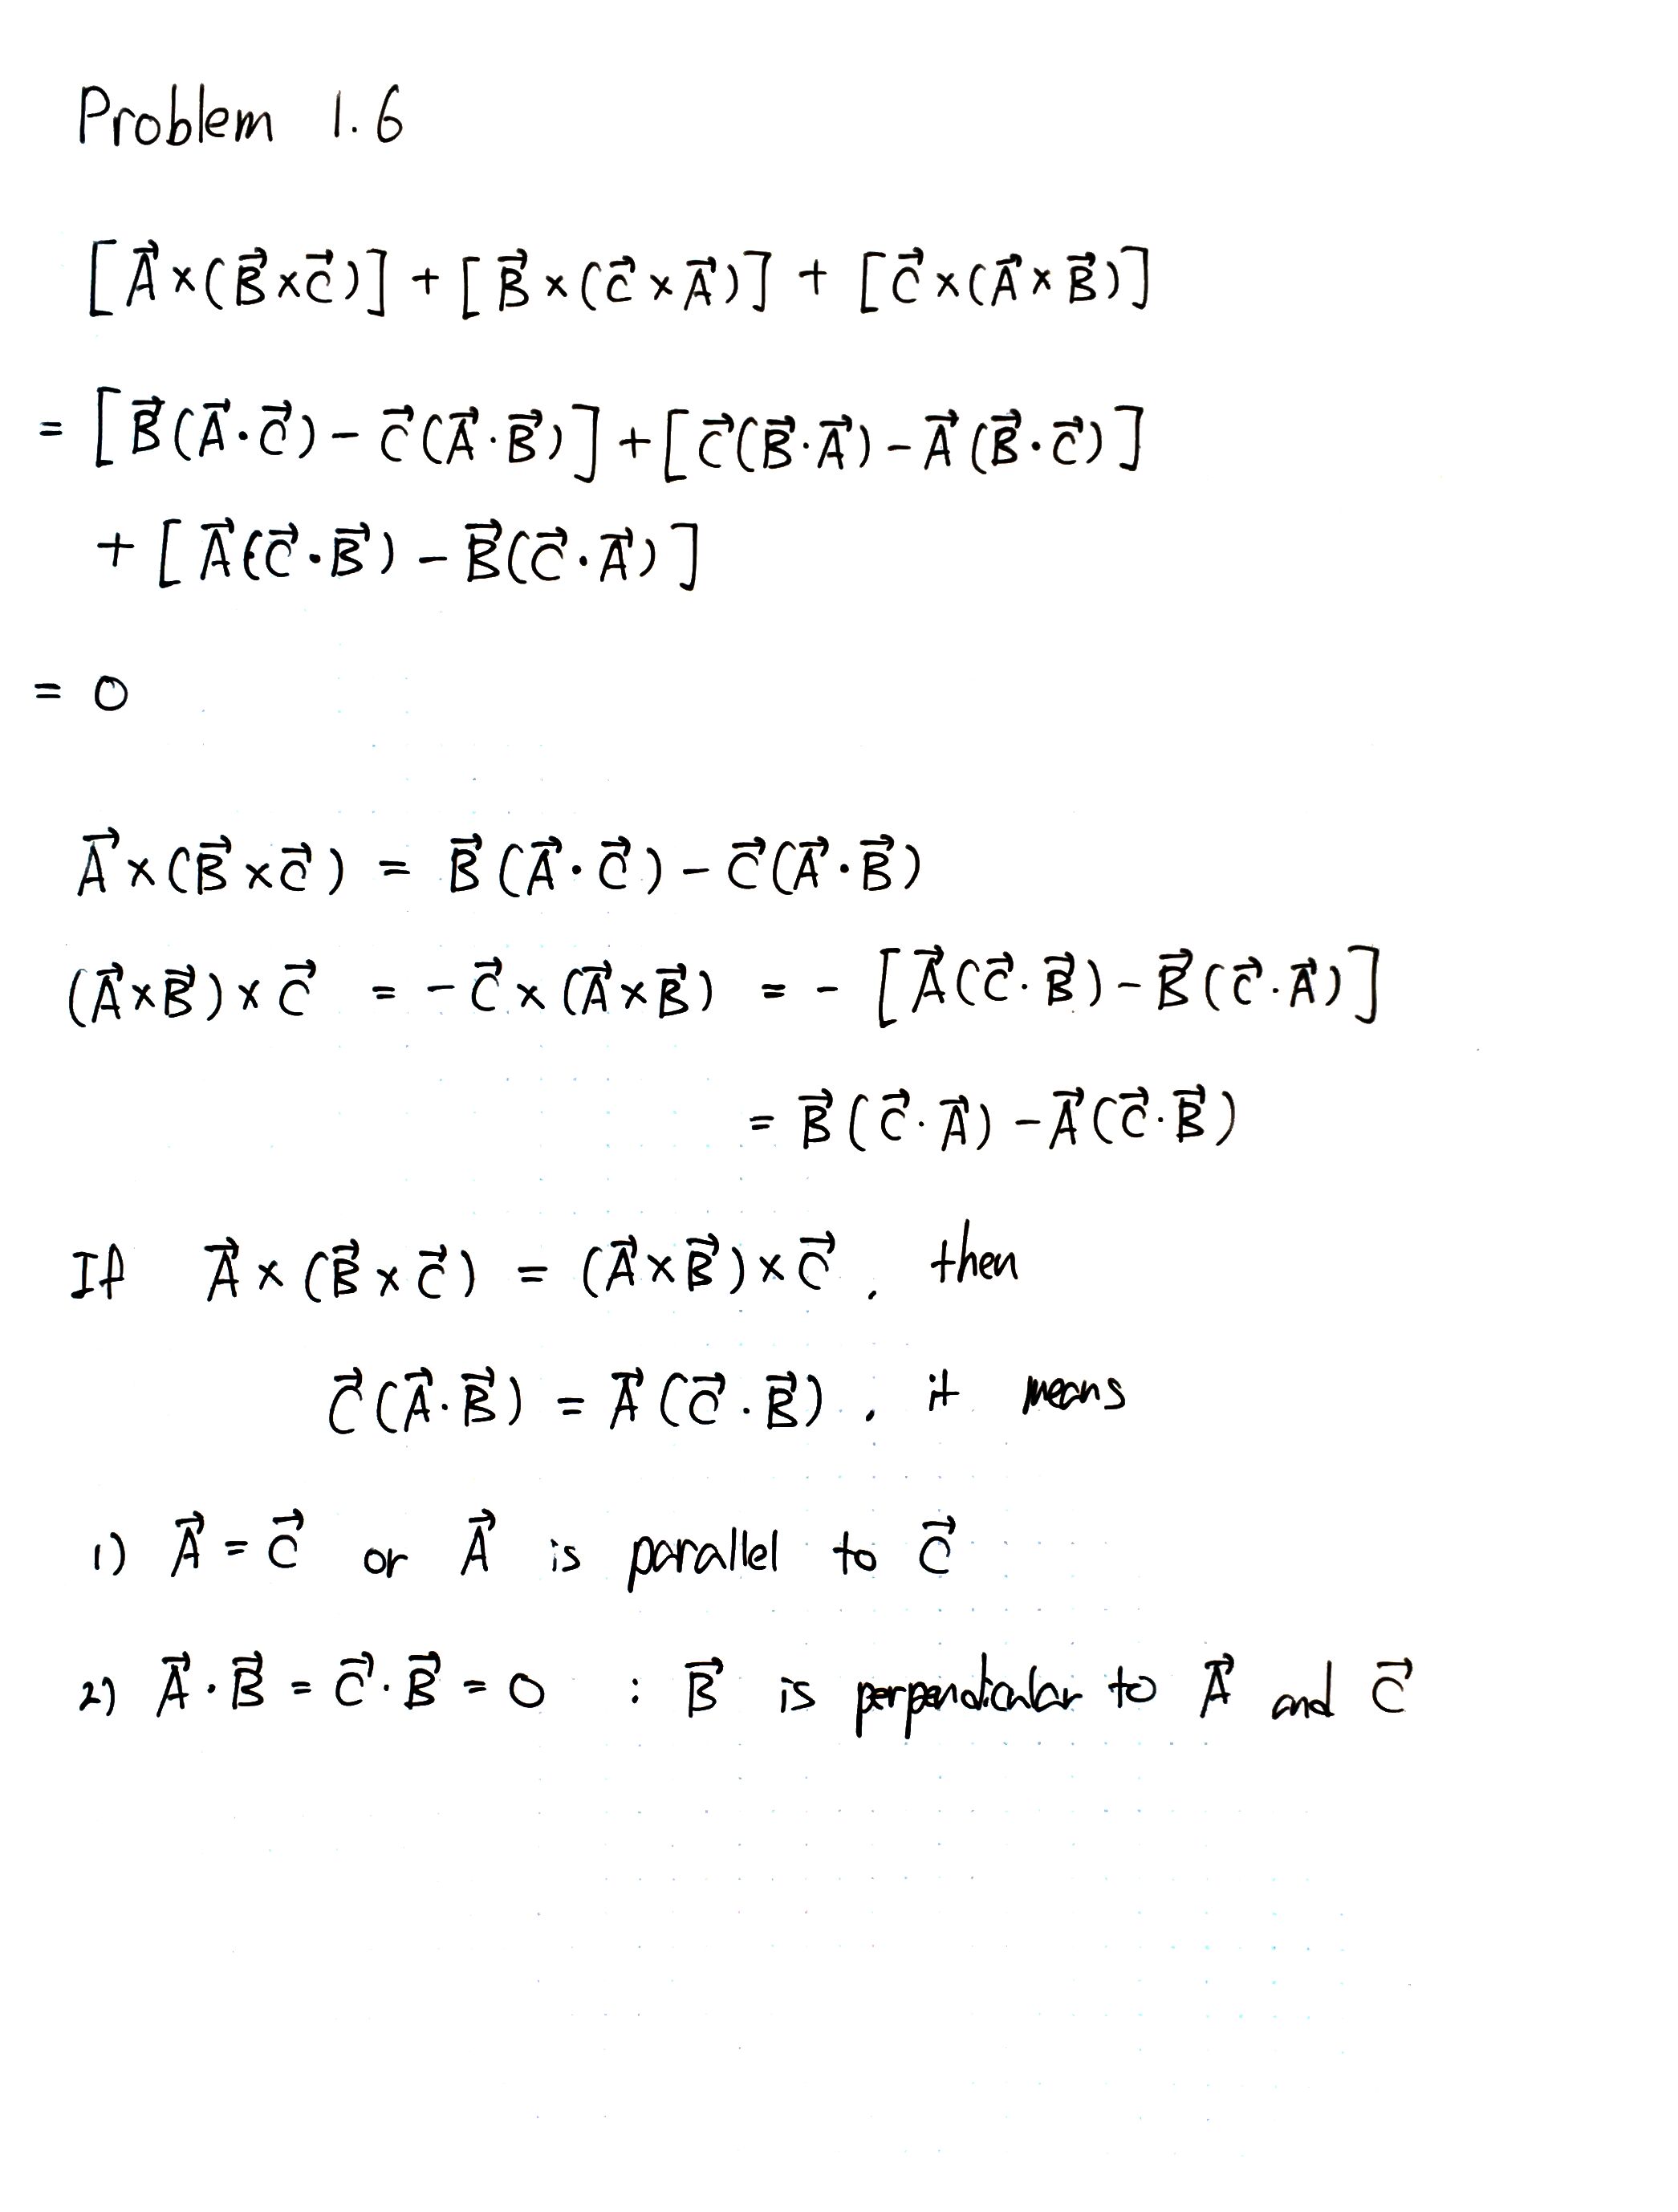 Problem 1.6
[A⃗×(B⃗×C⃗)] + [B⃗×(C⃗×A⃗)] + [C⃗×(A⃗×B⃗)]
= [B⃗(A⃗·C⃗) - C⃗(A⃗·B⃗)] + [C⃗(B⃗·A⃗) - A⃗(B⃗·C⃗)]
+ [A⃗(C⃗·B⃗) - B⃗(C⃗·A⃗)]
= 0
A⃗×(B⃗×C⃗) = B⃗(A⃗·C⃗) - C⃗(A⃗·B⃗)
(A⃗×B⃗)×C⃗ = -C⃗×(A⃗×B⃗) = - [A⃗(C⃗·B⃗) - B⃗(C⃗·A⃗)]
= B⃗(C⃗·A⃗) - A⃗(C⃗·B⃗)
If A⃗×(B⃗×C⃗) = (A⃗×B⃗)×C⃗, then
C⃗(A⃗·B⃗) = A⃗(C⃗·B⃗), it means
1) A⃗ = C⃗ or A⃗ is parallel to C⃗
2) A⃗·B⃗ = C⃗·B⃗ = 0 : B⃗ is perpendicular to A⃗ and C⃗